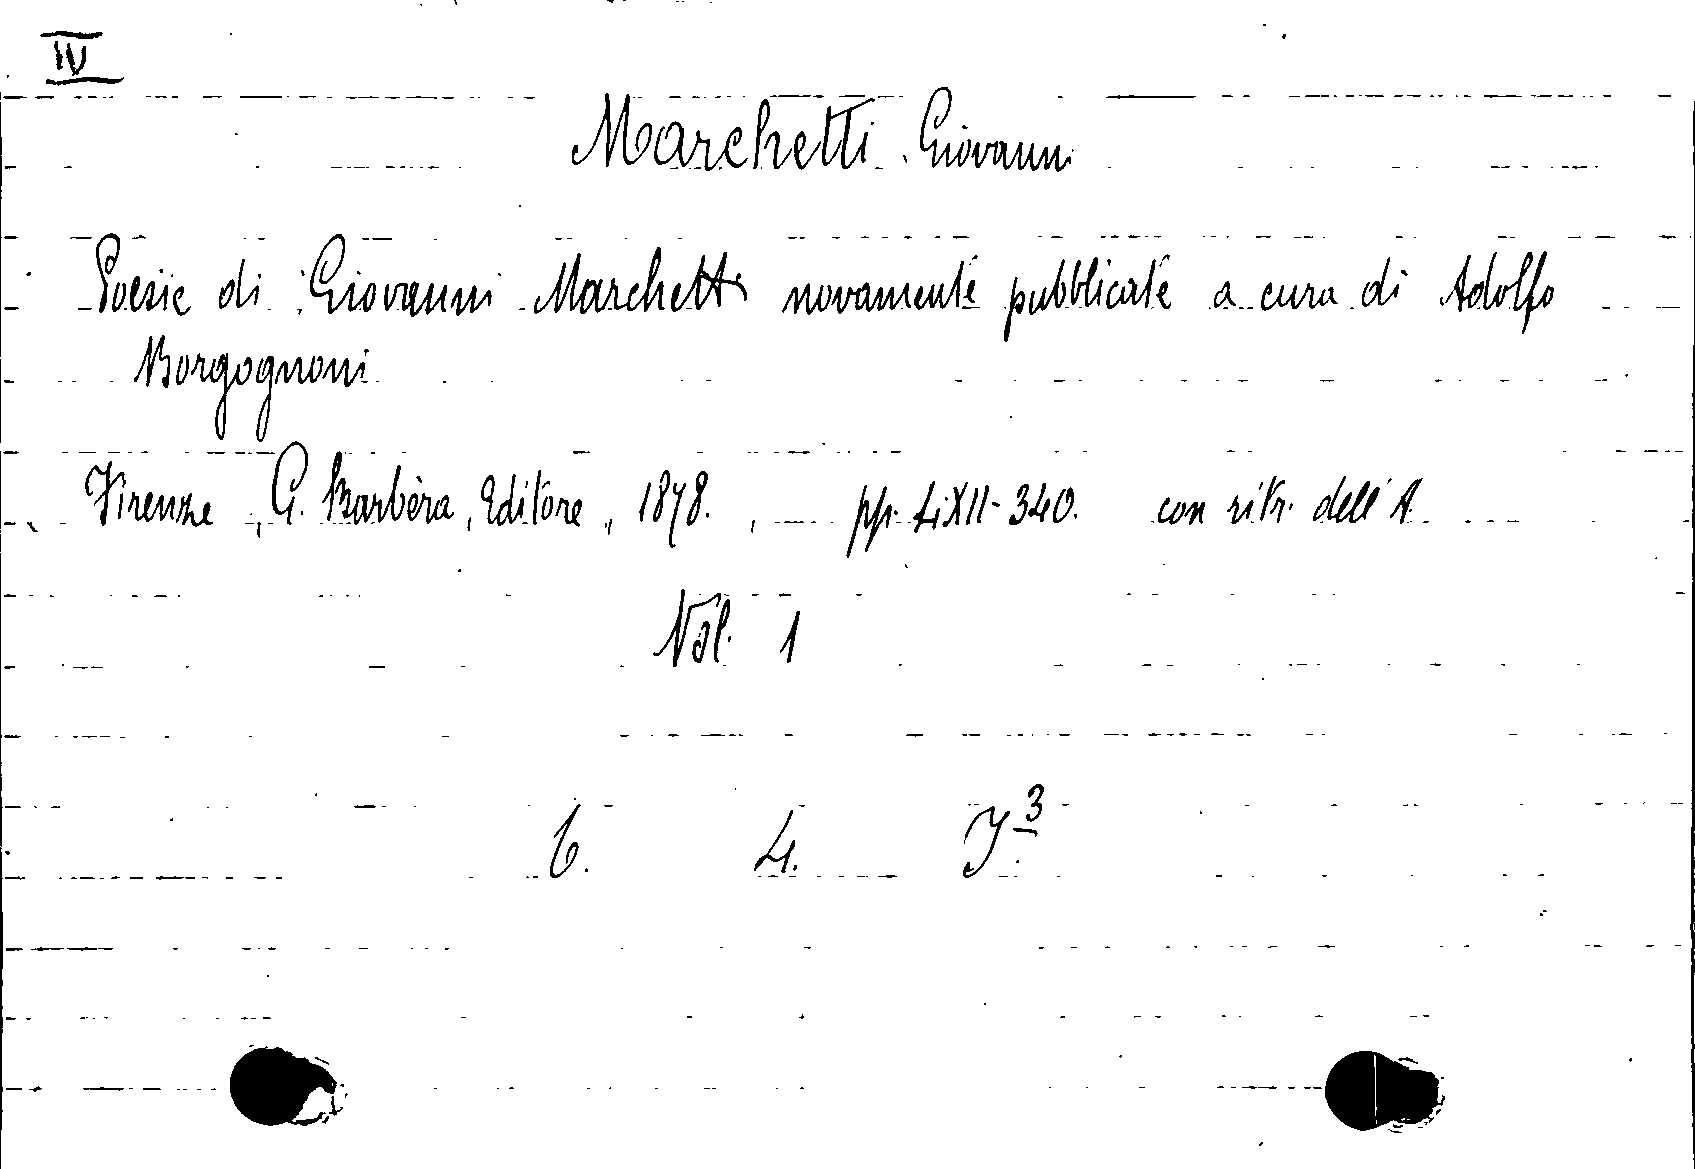 IV
Marchetti Giovanni
Poesie di Giovanni Marchetti novamente pubblicate a cura di Adolfo
Borgognoni
Firenze, G. Barbèra, Editore, 1878. , pp. LXII-340. con ritr. dell'A.
Vol. 1
6. 4. J 3